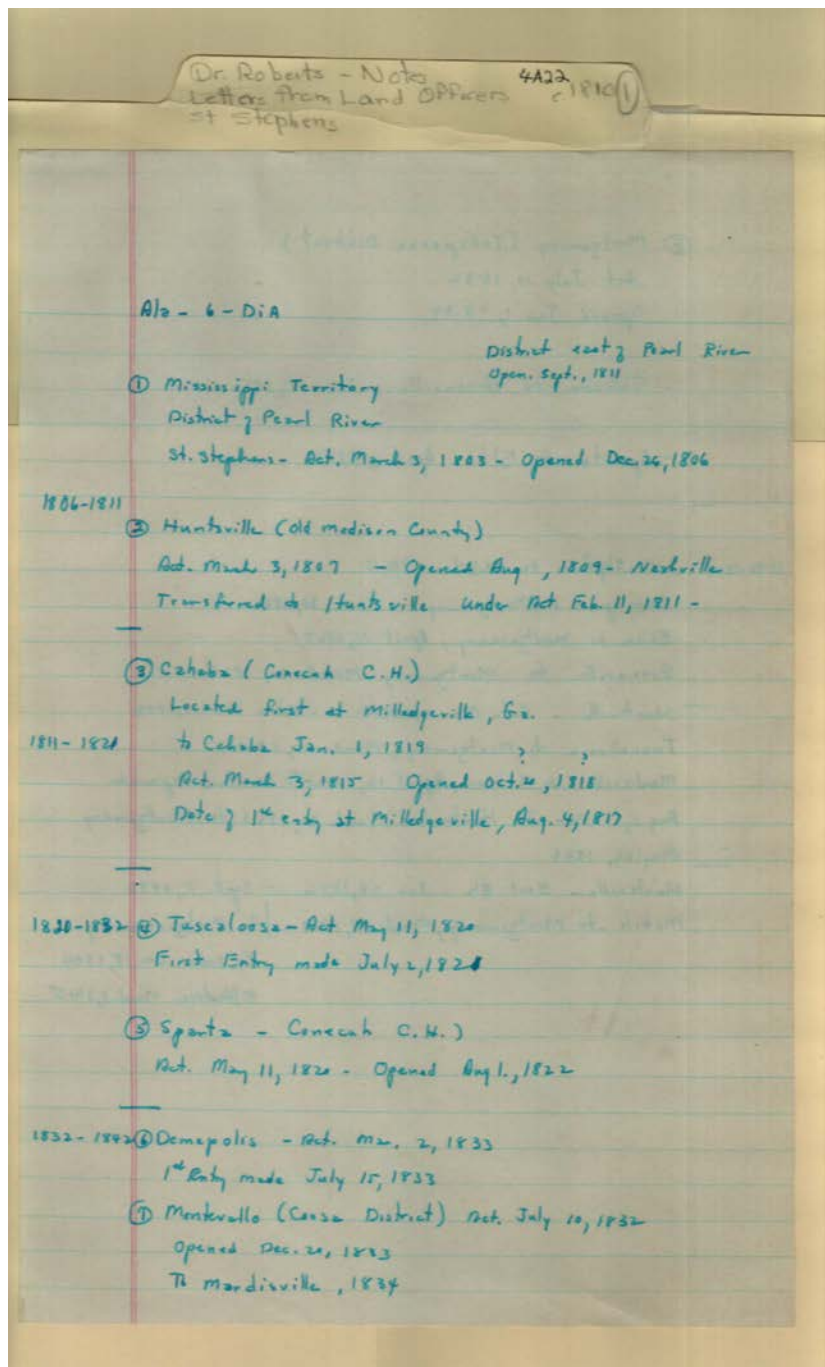 Dr. Roberts - Notes 4A22
Letters from Land Officers c. 1810 ①
St Stephens
Ala - 6 - DiA
District east of Pearl River
Open. Sept., 1811
① Mississippi Territory
District of Pearl River
St. Stephens - Act. March 3, 1803 - Opened Dec. 26, 1806
1806-1811
② Huntsville (Old Madison County)
Act. March 3, 1807 - Opened Aug , 1809 - Nashville
Transferred to Huntsville under Act Feb. 11, 1811 -
③ Cahaba (Conecuh C.H.)
Located first at Milledgeville, Ga.
1811-1821 to Cahaba Jan. 1, 1819 ? ?
Act. March 3, 1815 Opened Oct. 20, 1818
Date of 1st entry at Milledgeville, Aug. 4, 1817
1820-1832 ④ Tuscaloosa - Act May 11, 1820
First Entry made July 2, 1821
⑤ Sparta - Conecuh C.H.)
Act. May 11, 1820 - Opened Aug 1., 1822
1832-1842 ⑥ Demopolis - Act. Mar. 2, 1833
1st Entry made July 15, 1833
⑦ Montevallo (Coosa District) Act. July 10, 1832
Opened Dec. 20, 1833
To Mardisville, 1834